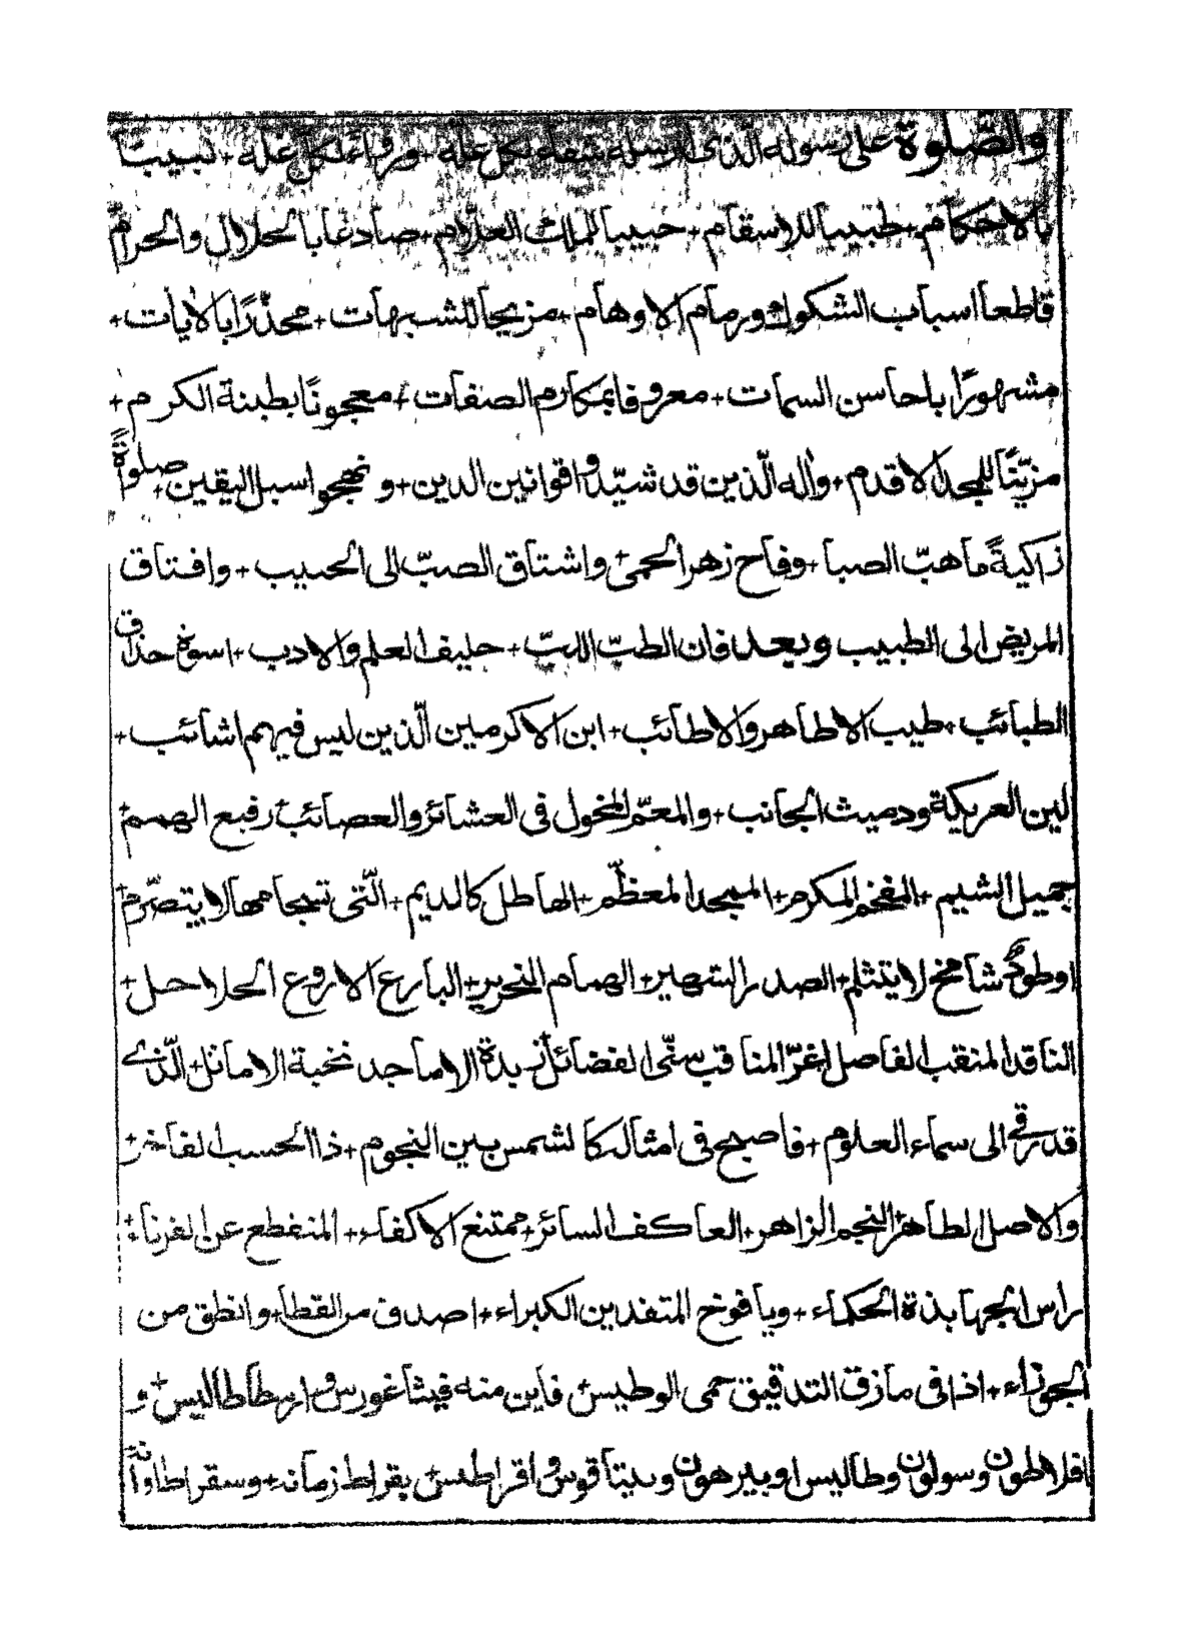 والصلوة على رسوله الذى ارسله شفاء لكل علة + ورواء لكل غلة + لبيبًا
بالاحكام + طبيبا للاسقام + حبيبا للملك العلام + صادعًا بالحلال والحرام
قاطعا اسباب الشكوك ورمام الاوهام + مزيحا للشبهات + محذرًا بالايات +
مشهورًا بالمحاسن السمات + معروفا بمكارم الصفات + معجونًا بطينة الكرم +
مزيّنًا للمجد الاقدم + واٰله الّذين قد شيّدوا قوانين الدين + ونهجوا سبل اليقين + صلوةً
زاكيةً ما هبّ الصبا + وفاح زهر الحمى + واشتاق الصبّ الى الحبيب + وافتاق
المريض الى الطبيب وبعد فان الطبّ اللبّ + حليف العلم والادب + اسوة حذاق
الطبائب + طيب الاطاهر والاطائب + ابن الاكرمين الّذين ليس فيهم شائب +
لين العريكة ودميث الجانب + والمعمّ المخول فى العشائر والعصائب + رفيع الهمم +
جميل الشيم + المفخم المكرم + المبجد المعظّم + الهاطل كالديم + الّتى تهجامها لا يتصرّم +
اوطود شامخ لا يتثلم + الصدر الشهير + الهمام النحرير + البارع الاروع الحلاحل +
الناقد المنقب الفاصل اغرّ المناقب سنّى الفضائل زبدة الاماجد نخبة الاماثل + الّذى
قد رقى الى سماء العلوم + فاصبح فى امثاله كالشمس بين النجوم + ذا الحسب الفاخر +
والاصل الطاهر + النجم الزاهر + العاكف السائر + ممتنع الاكفاء + المنقطع عن القرناء +
راس الجهابذة الحكماء + ويافوخ المتقدمين الكبراء + اصدق من القطا + وانطق من
الجوزاء + اذا فى مازق التدقيق حمى الوطيس + فاين منه فيثاغورس وارسطاطاليس + و
افلاطون وسولون وطاليس وبيرهون وبيتاقوس واقراطيس + بقراط زمانه + وسقراط اوانه